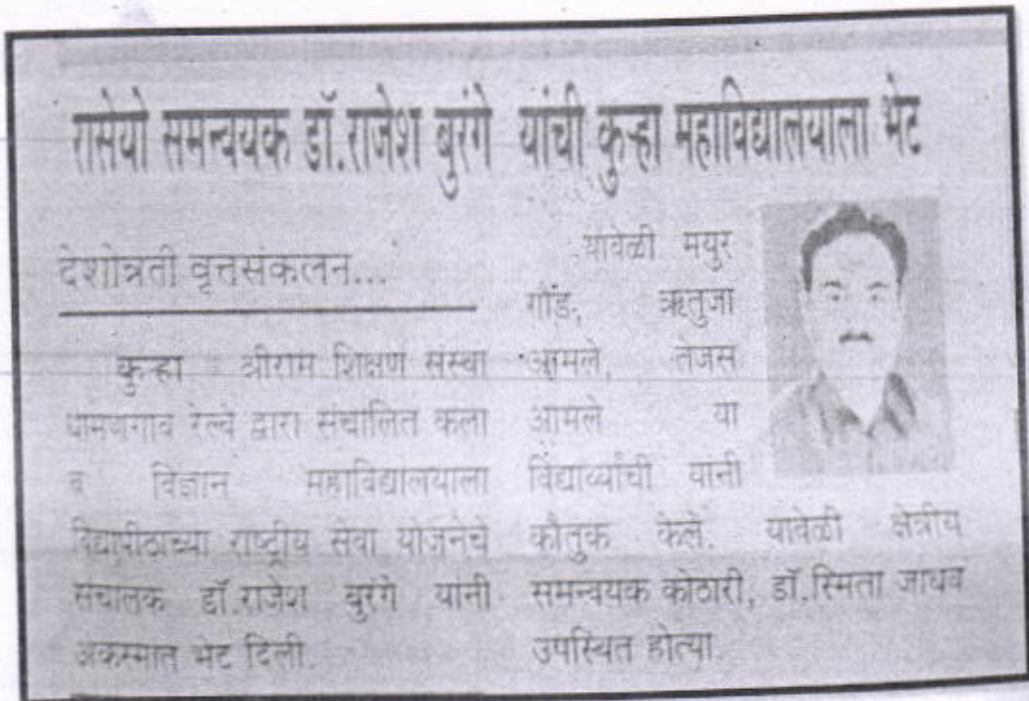 रासेयो समन्वयक डॉ.राजेश बुरंगे यांची कुऱ्हा महाविद्यालयाला भेट
देशोन्नती वृत्तसंकलन...
कुऱ्हा श्रीराम शिक्षण संस्था
धामणगाव रेल्वे द्वारा संचालित कला
व विज्ञान महाविद्यालयाला
विद्यापीठाच्या राष्ट्रीय सेवा योजनेचे
संचालक डॉ.राजेश बुरंगे यांनी
अकस्मात भेट दिली.
यावेळी मयुर
गोंड, ऋतुजा
आमले, तेजस
आमले या
विद्यार्थ्यांची यांनी
कौतुक केले. यावेळी क्षेत्रीय
समन्वयक कोठारी, डॉ.स्मिता जाधव
उपस्थित होत्या.